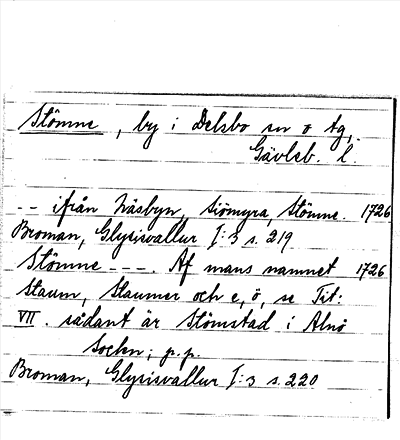 Stömne, by i Delsbo sn o tg,
Gävleb. l.
-- ifrån Näsbyn, Siömyra, Stömne. 1726
Broman, Glysisvallur I:3 s. 219
Stömne - - - . Af mans namnet 1726
Staum, Staumer och e, ö, se Tit:
VII. sådant är Stömstad i Alnö
Sochn; p.p.
Broman, Glysisvallur I:3 s. 220